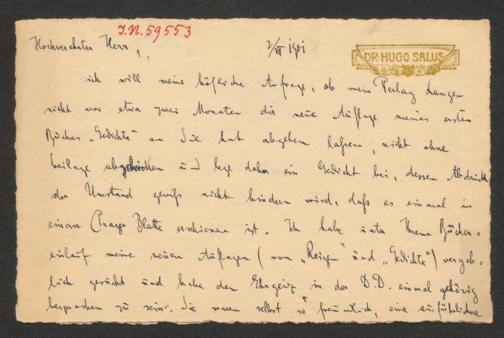 I.N. 59553
Hochverehrter Herr,
2/VI 1901
DR HUGO SALUS
ich will meine höfliche Anfrage, ob mein Verlag Langen
nicht vor etwa zwei Monaten die neue Auflage meines ersten
Buches „Gedichte“ an Sie hat abgehen laßen, nicht ohne
Beilage abschicken und lege daher ein Gedicht bei, dessen Abdruck
der Umstand gewiß nicht hindern wird, daß es einmal in
einem Prager Blatte erschienen ist. Ich habe unter Ihrem Bücher=
einlauf meine neuen Auflagen (von „Reigen“ und „Gedichte“) vergeb=
lich gesucht und habe den Ehrgeiz in der D.D. einmal gehörig
besprochen zu sein. Sie waren selbst so freundlich, eine ausführlichere